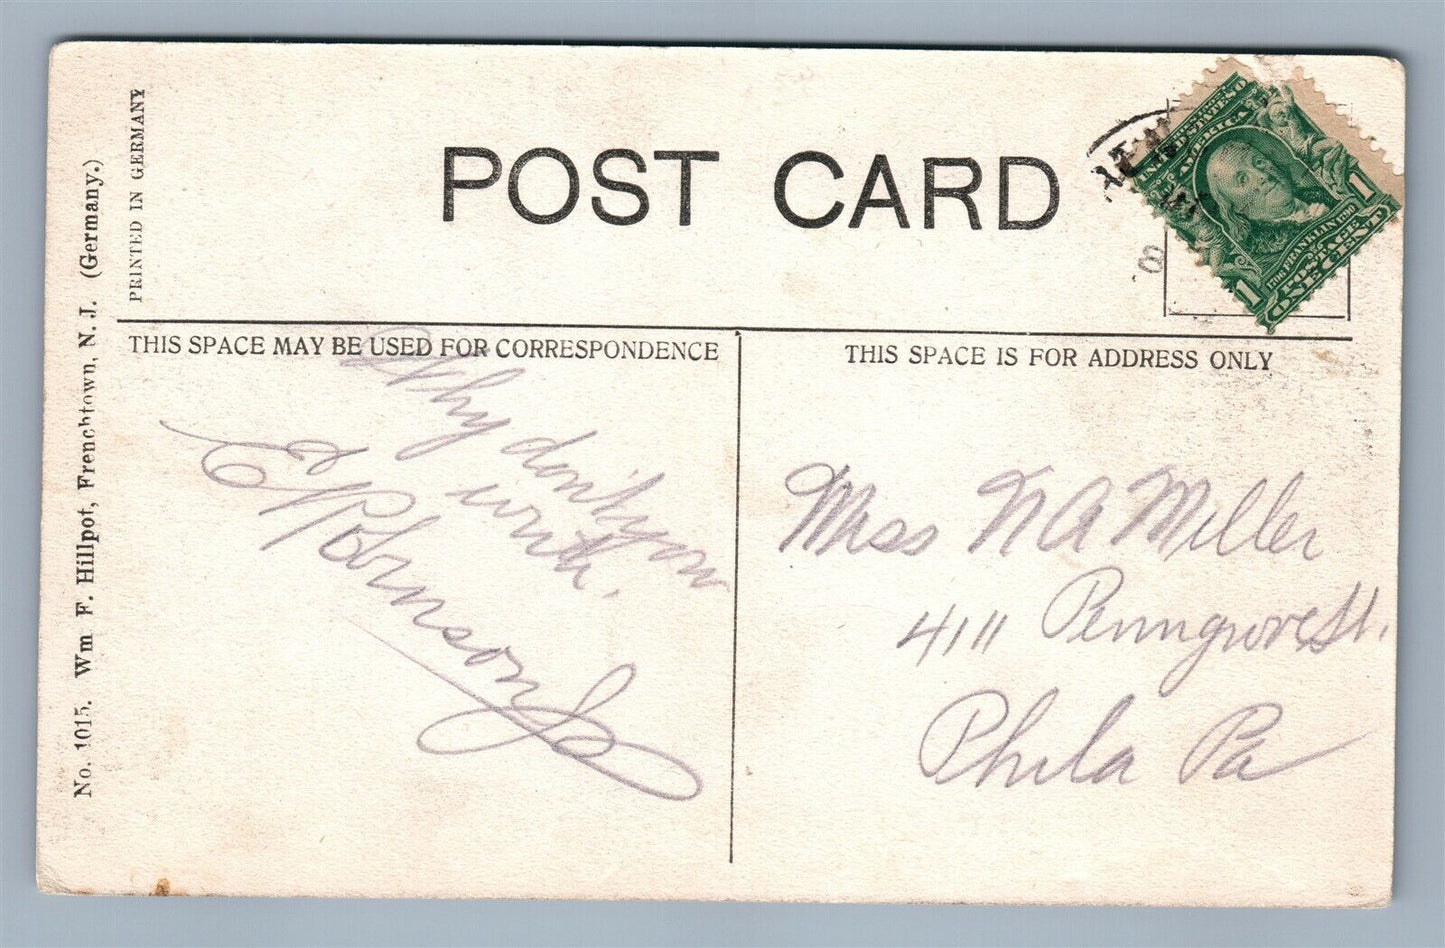 POST CARD
PRINTED IN GERMANY
No. 1015. Wm F. Hillpot, Frenchtown, N. J. (Germany.)
UNITED STATES OF
AMERICA
1706 FRANKLIN 1790
POSTAGE
1 ONE CENT 1
8
THIS SPACE MAY BE USED FOR CORRESPONDENCE
Why don't you
write.
E Robinson Jr
THIS SPACE IS FOR ADDRESS ONLY
Miss N A Miller
411 Penngrove St.
Phila Pa